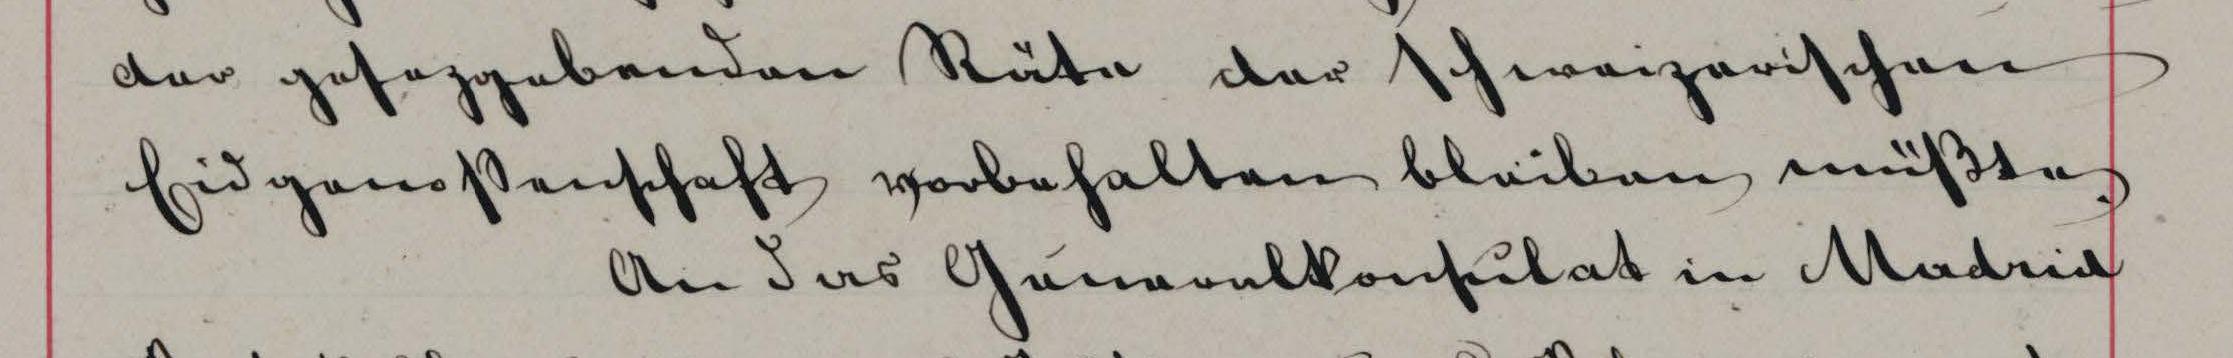 der gesezgebenden Räte der schweizerischen
Eidgenoßenschaft vorbehalten bleiben müßte.
An das Generalkonsulat in Madrid